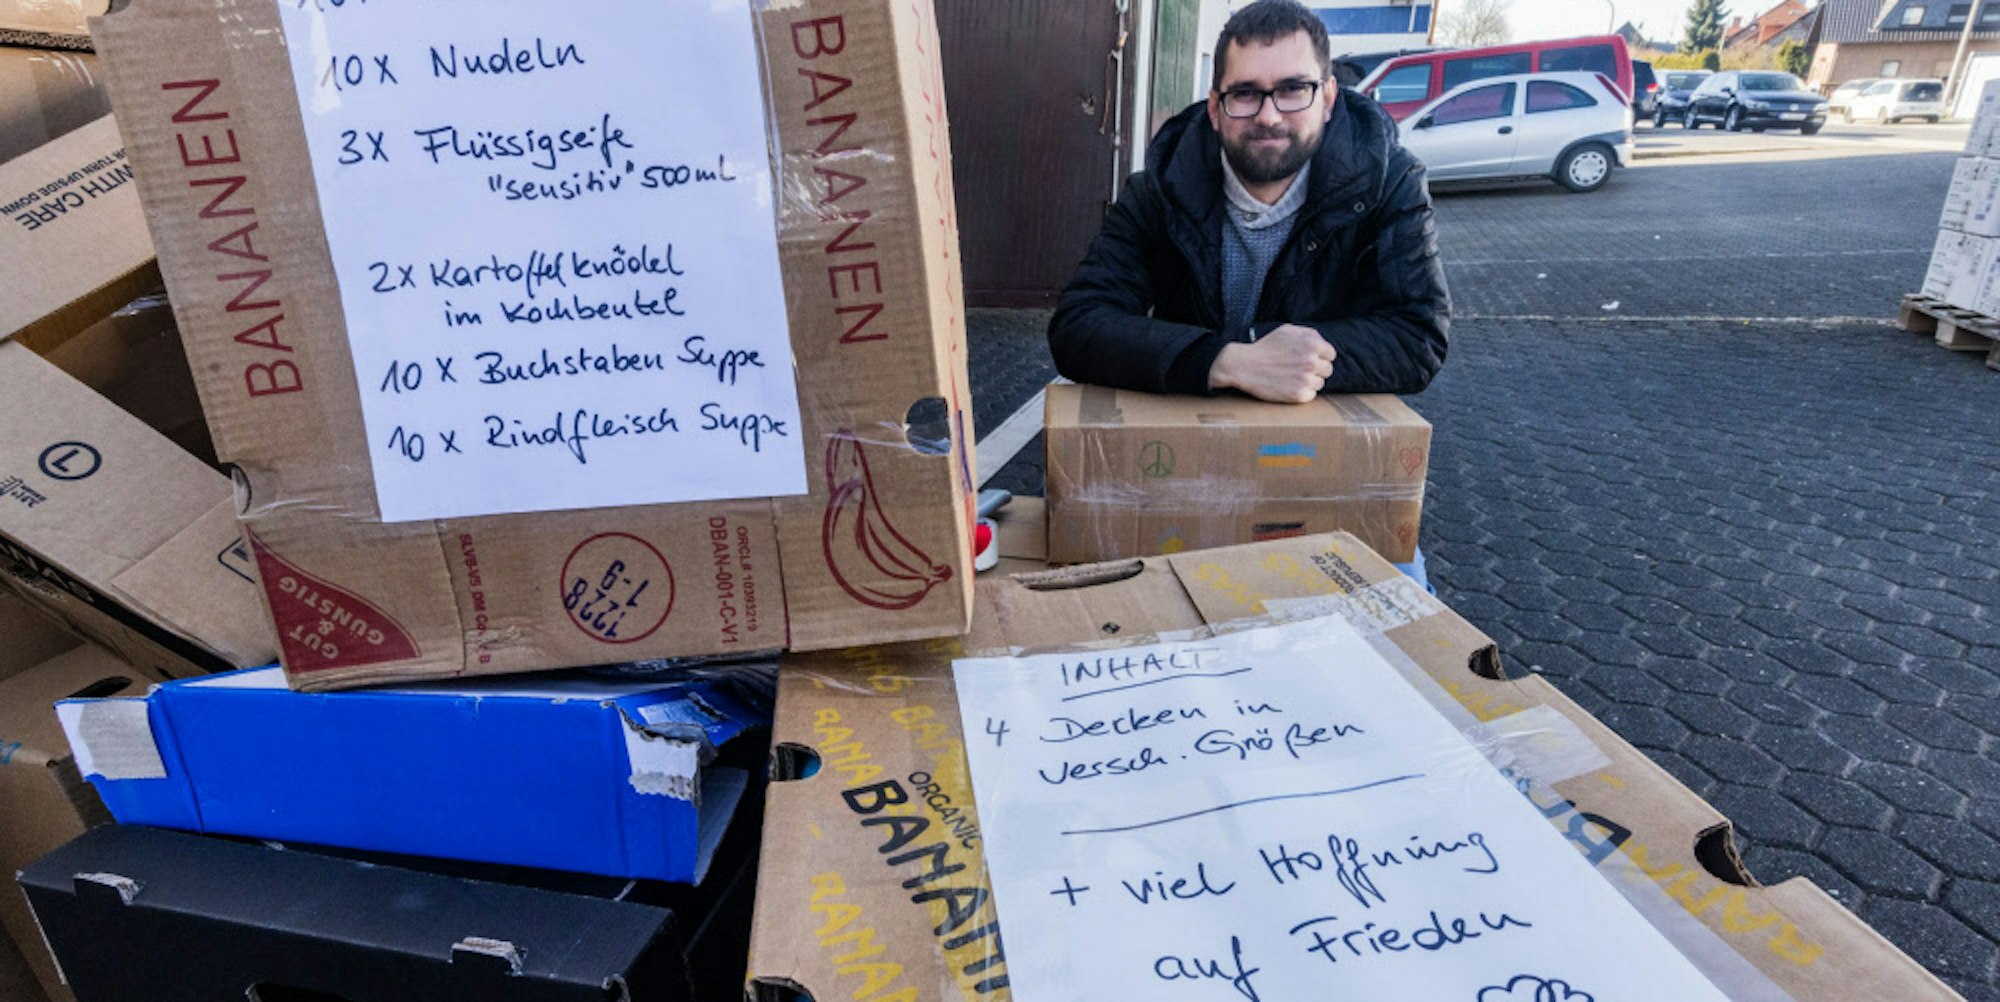 10 x Nudeln
3x Flüssigseife
"sensitiv" 500ml
2x Kartoffelknödel
im Kochbeutel
10 x Buchstaben Suppe
10 x Rindfleisch Suppe
BANANEN
BANANEN
GUT
&
GÜNSTIG
1228
1-9
DBAN-001-C-V1
WITH CARE
TURN UPSIDE DOWN
INHALT
4 Decken in
versch. Größen
+ viel Hoffnung
auf Frieden
ORGANIC
BANANA